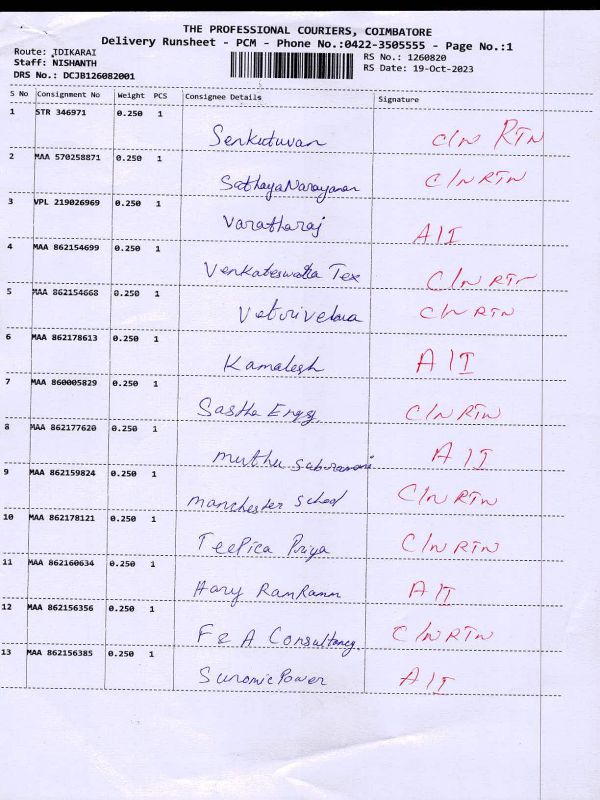 THE PROFESSIONAL COURIERS, COIMBATORE
Delivery Runsheet - PCM - Phone No.:0422-3505555 - Page No.:1
Route: IDIKARAI RS No.: 1260820
Staff: NISHANTH RS Date: 19-Oct-2023
DRS No.: DCJB126082001
S No Consignment No Weight PCS Consignee Details Signature
1 STR 346971 0.250 1 Senkutuvan C/N RTN
2 MAA 570258871 0.250 1 SathayaNarayanan C/N RTN
3 VPL 219026969 0.250 1 Varatharaj A/I
4 MAA 862154699 0.250 1 Tex C/N RTN
5 MAA 862154668 0.250 1 C/N RTN
6 MAA 862178613 0.250 1 Kamalesh A/I
7 MAA 860005829 0.250 1 Sastha Engg. C/N RTN
8 MAA 862177620 0.250 1 muthu A/I
9 MAA 862159824 0.250 1 manchester School C/N RTN
10 MAA 862178121 0.250 1 TeePica Priya C/N RTN
11 MAA 862160634 0.250 1 Hary A/I
12 MAA 862156356 0.250 1 F & A Consultancy. C/N RTN
13 MAA 862156385 0.250 1 Sunomic Power A/I